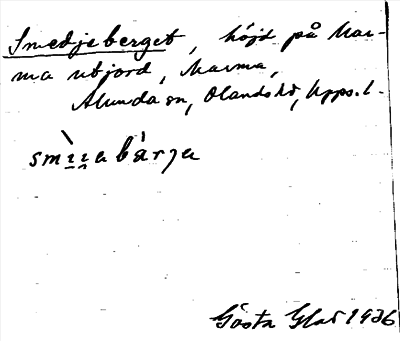 Smedjeberget, höjd på Mar-
ma utjord, Marma,
Alunda sn, Olands hd, Upps. l.
smìıabàrʒa
Gösta Glad 1936